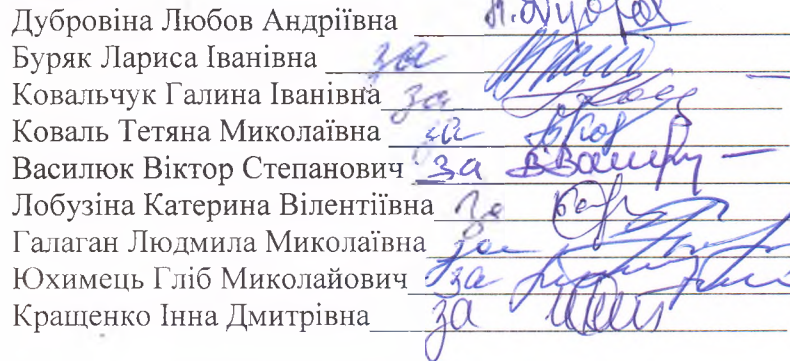 Дубровіна Любов Андріївна
Буряк Лариса Іванівна за
Ковальчук Галина Іванівна за
Коваль Тетяна Миколаївна за
Василюк Віктор Степанович за
Лобузіна Катерина Вілентіївна за
Галаган Людмила Миколаївна за
Юхимець Гліб Миколайович за
Кращенко Інна Дмитрівна за